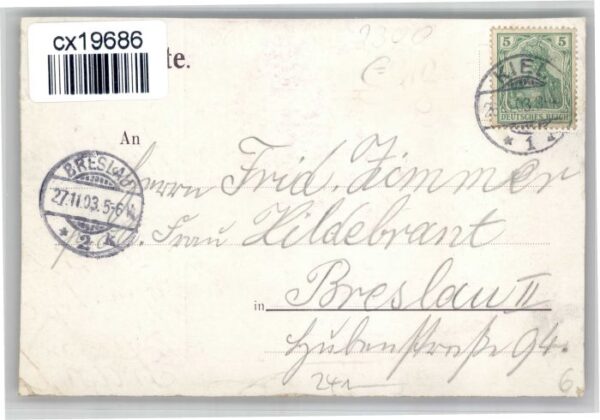 cx19686
te.
5 5
DEUTSCHES REICH
KIEL
03. 8-
* 1
An
BRESLAU
27.11.03. 5-6
* 2 k
Herrn Frid. Zimmer
Frau Hildebrant
in Breslau II
Hubenstraße 94.
24
6